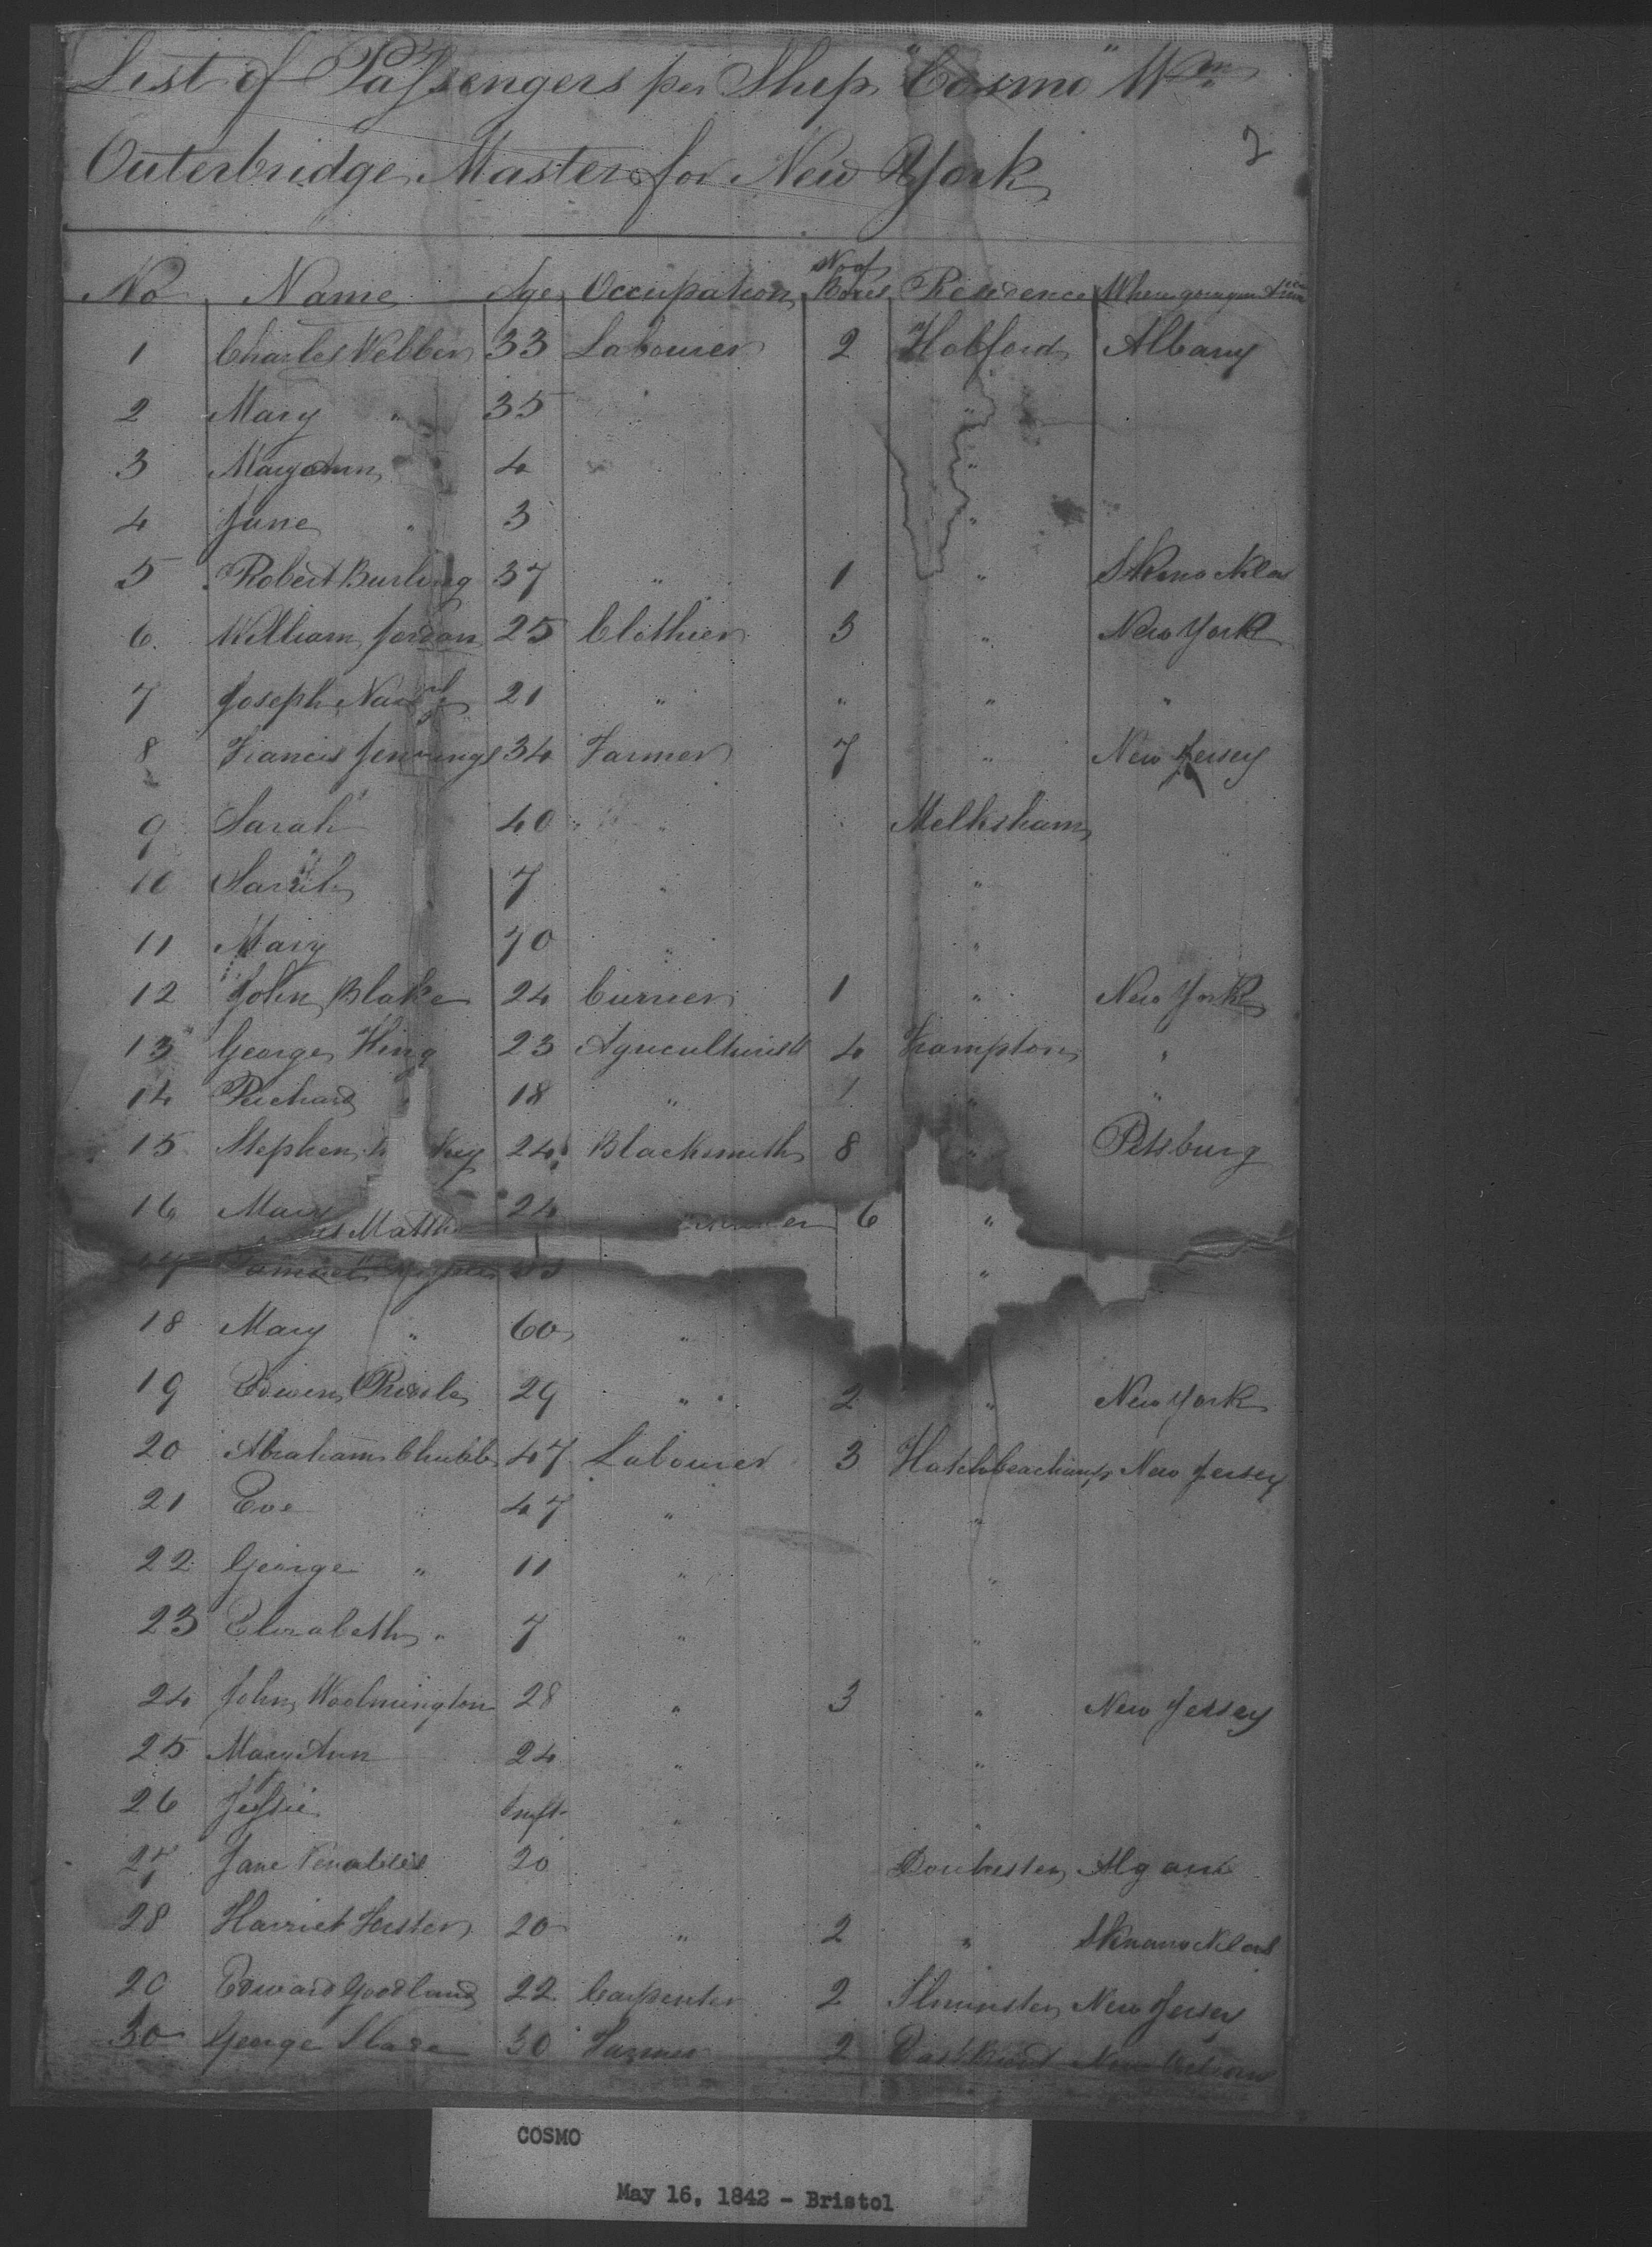 List of Passengers per Ship "Cosmo" Wm
Outerbridge Master for New York
2
No Name Age Occupation No of Boxes Residence Where going in
1 Charles Webber 33 Labourer 2 Holford Albany
2 Mary " 35 "
3 Maryann 4 "
4 Jane " 3 "
5 Robert Burling 37 " 1 "
6 William Jordan 25 Clothier 3 " New York
7 Joseph 21 " " " "
8 Francis Jennings 34 Farmer 7 " New Jersey
9 Sarah 40 " Melksham
10 Sarah 7 " "
11 Mary 70 " "
12 John Blake 24 Currier 1 " New York
13 George King 23 Agriculturist 4 Frampton "
14 Richard " 18 " 1 " "
15 Stephen 24 Blacksmith 8 " Pitsburg
16 Mary 24 6 "
17 Samuel "
18 Mary " 60 "
19 Edwin 29 " 2 " New York
20 Abraham Chubb 47 Labourer 3 Hatchbeachamp New Jersey
21 Eve 47 " "
22 George " 11 " "
23 Elizabeth " 7 " "
24 John Woolmington 28 " 3 " New Jersey
25 Mary Ann 24 " "
26 Jessie Inft " "
27 Jane Venables 20 Dorchester
28 Harriet Foster 20 " 2 "
29 Edward Goodland 22 Carpenter 2 Ilminster New Jersey
30 George Slade 30 Farmer 2 New
COSMO
May 16, 1842 - Bristol